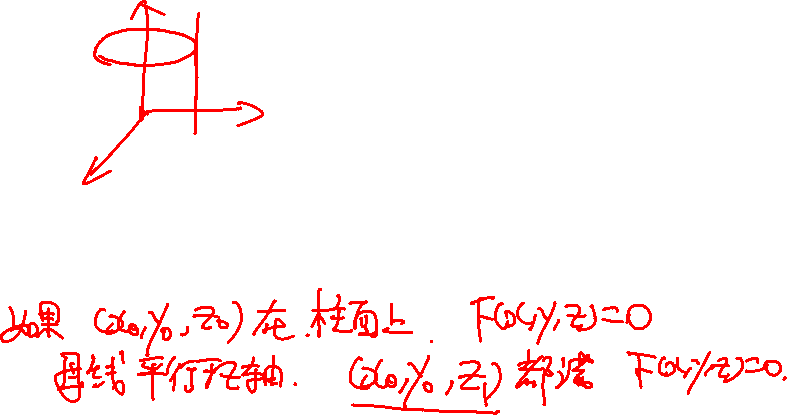 如果 (x₀, y₀, z₀) 在 柱面上. F(x,y,z)=0
母线平行于z轴. (x₀, y₀, z₁) 都满 F(x,y,z)=0.